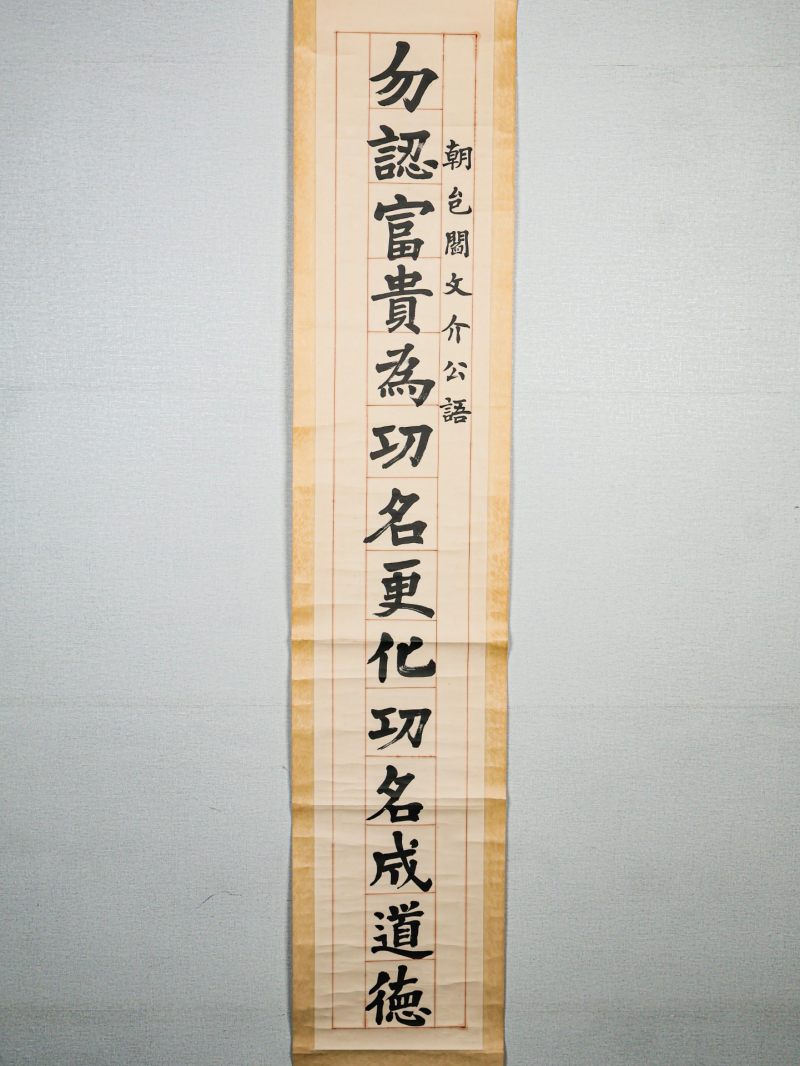 朝邑閻文介公語
勿認富貴為功名更化功名成道德